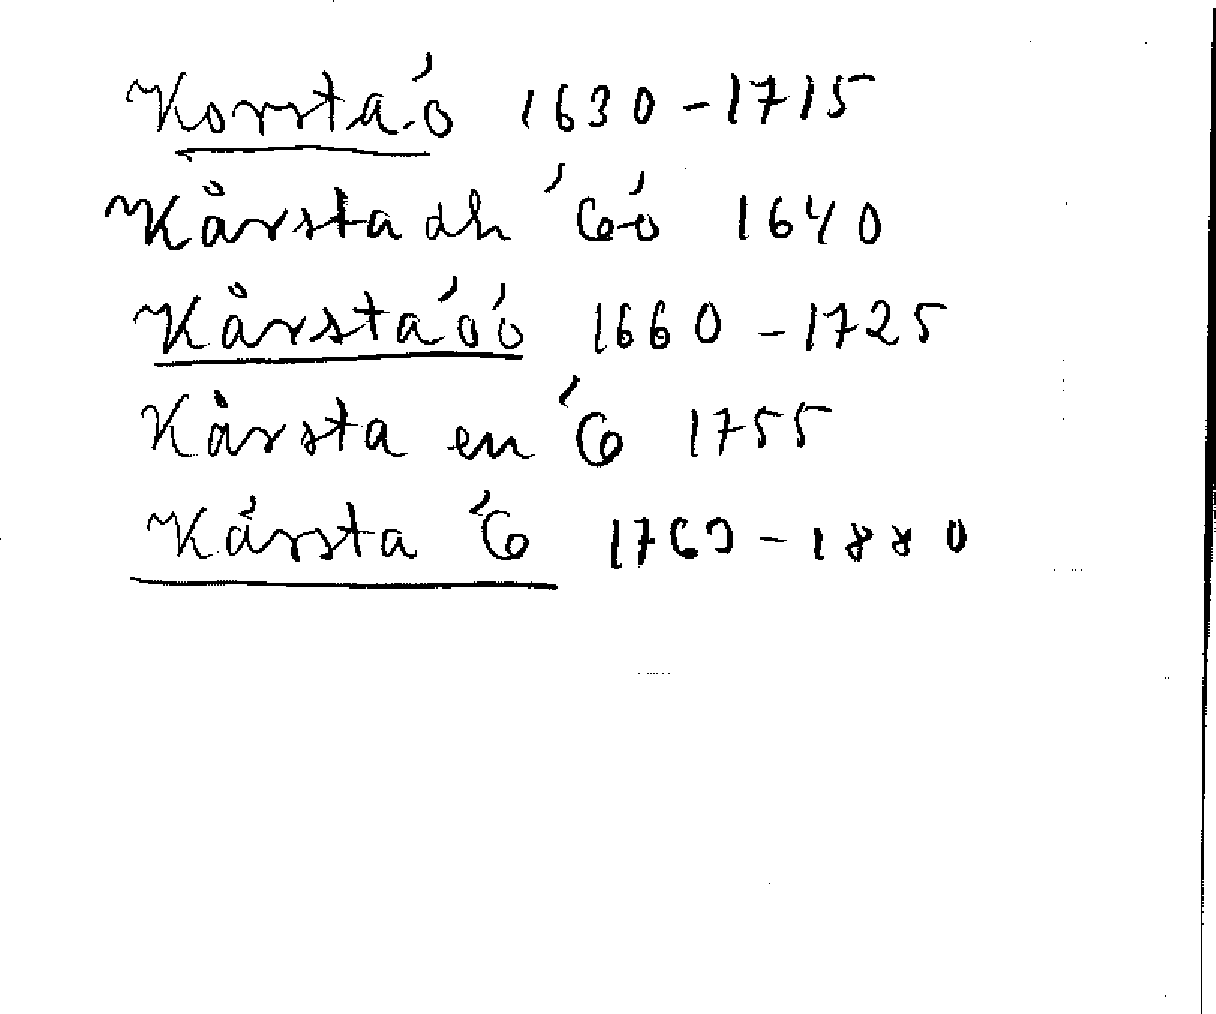 Korsta ó 1630-1715
Kårsta dh ó ó 1640
Kårsta ó ó 1660-1725
Kårsta en ó 1755
Kårsta ó 1760-1880